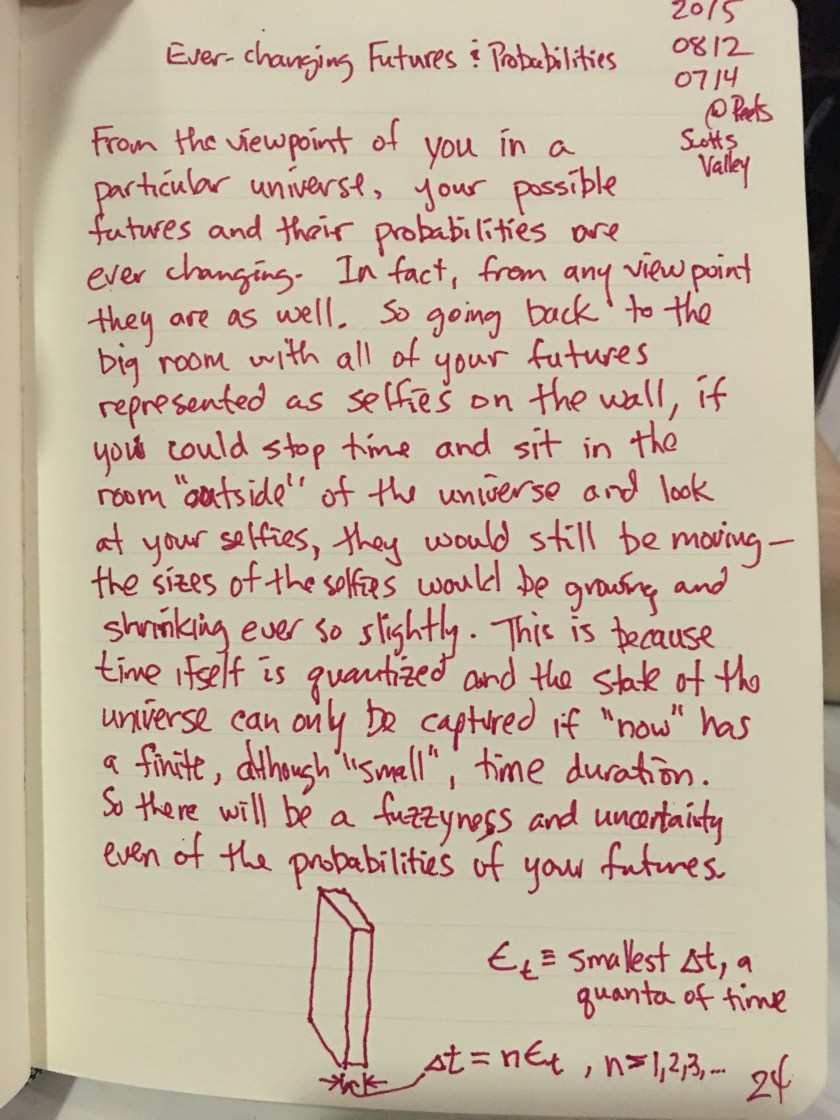 2015
Ever-changing Futures & Probabilities
0812
0714
@ Peets
Scotts
Valley
From the viewpoint of you in a
particular universe, your possible
futures and their probabilities are
ever changing. In fact, from any viewpoint
they are as well. So going back to the
big room with all of your futures
represented as selfies on the wall, if
you could stop time and sit in the
room "outside" of the universe and look
at your selfies, they would still be moving—
the sizes of the selfies would be growing and
shrinking ever so slightly. This is because
time itself is quantized and the state of the
universe can only be captured if "now" has
a finite, although "small", time duration.
So there will be a fuzzyness and uncertainty
even of the probabilities of your futures.
Єt ≡ smallest Δt, a
quanta of time
Δt = nЄt , n=1,2,3,...
24